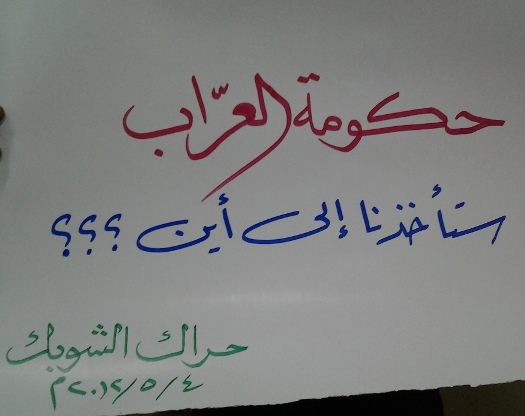 حكومة العرّاب
ستأخذنا إلى أين ؟؟؟
حراك الشوبك
٢٠١٢/٥/٤م